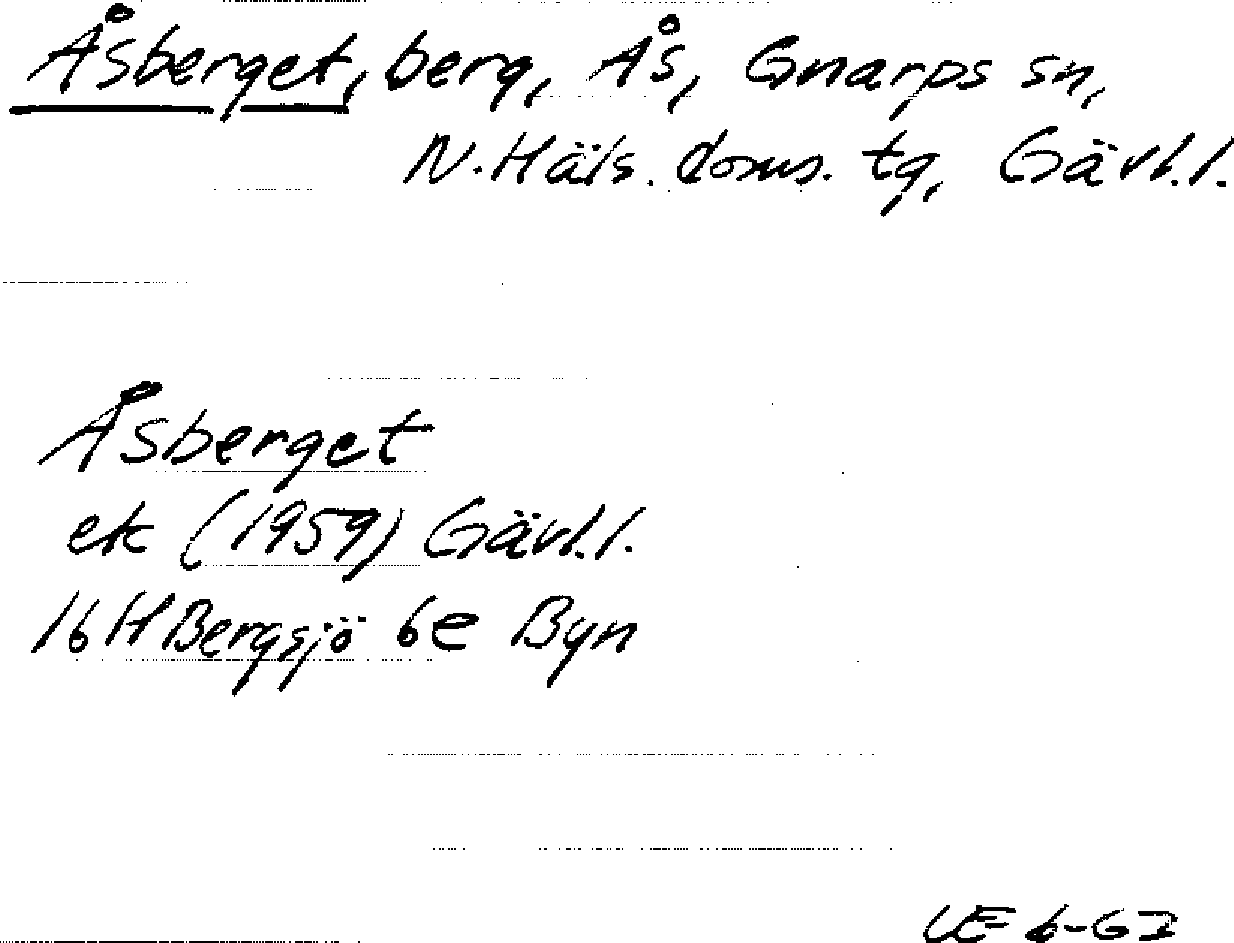 Åsberget, berg, Ås, Gnarps sn,
N. Häls. doms. tg, Gävl. l.
Åsberget
ek (1959) Gävl. l.
16H Bergsjö 6e Byn